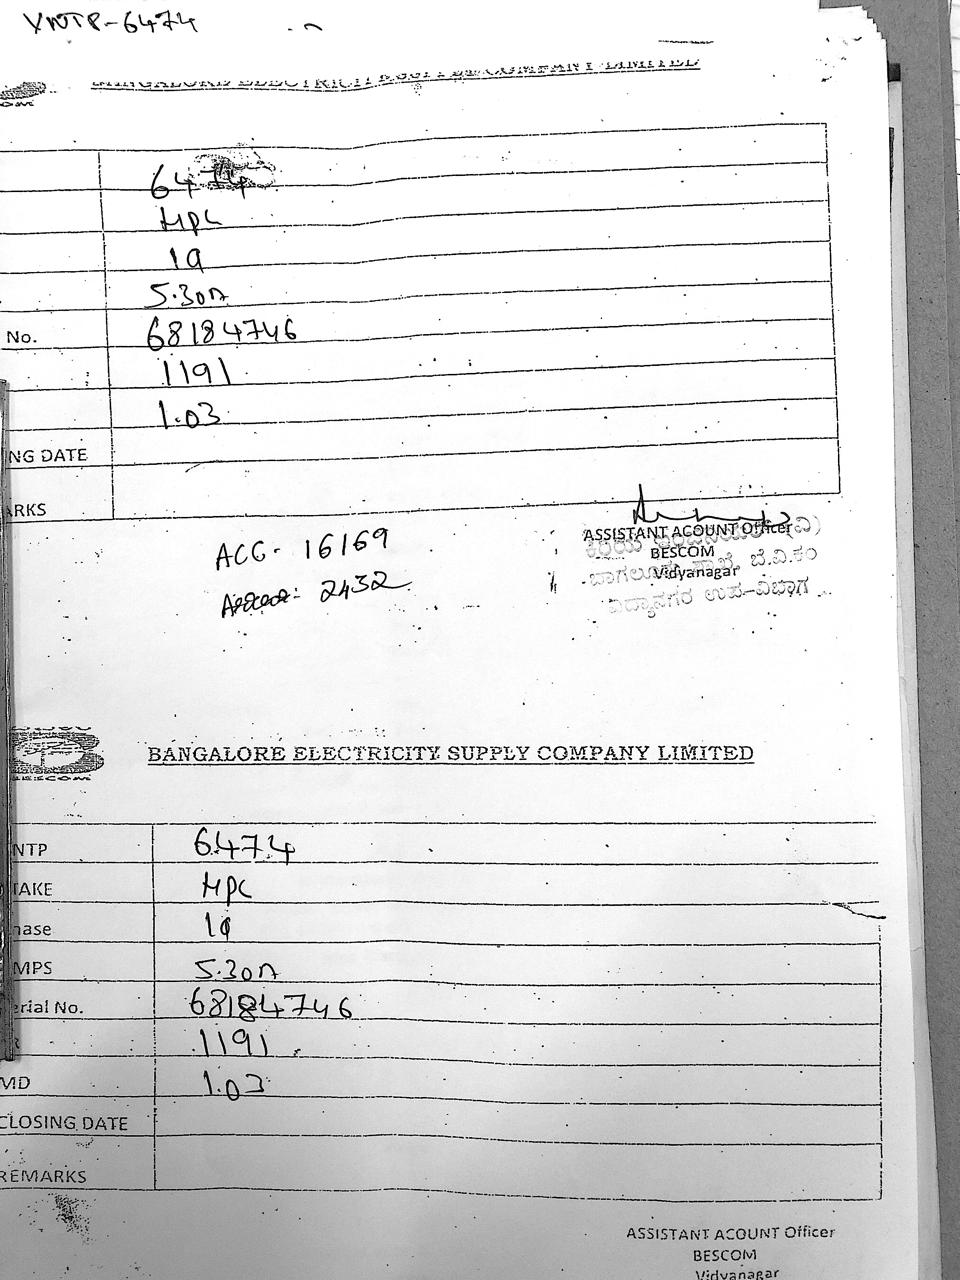 YNTP-6474
BANGALORE ELECTRICITY SUPPLY COMPANY LIMITED
6474
HPL
1φ
5.30A
No. 68184746
1191
1.03
NG DATE
ARKS
ACG- 16169
2432
ASSISTANT ACOUNT Officer
BESCOM
Vidyanagar
ಬಾಗಲೂರು ಶಾಖೆ ಬೆ.ವಿ.ಕಂ
ವಿದ್ಯಾನಗರ ಉಪ-ವಿಭಾಗ
BESCOM
BANGALORE ELECTRICITY SUPPLY COMPANY LIMITED
NTP 6474
TAKE HPL
hase 1φ
MPS 5.30A
erial No. 68184746
R 1191
MD 1.03
CLOSING DATE
REMARKS
ASSISTANT ACOUNT Officer
BESCOM
Vidyanagar